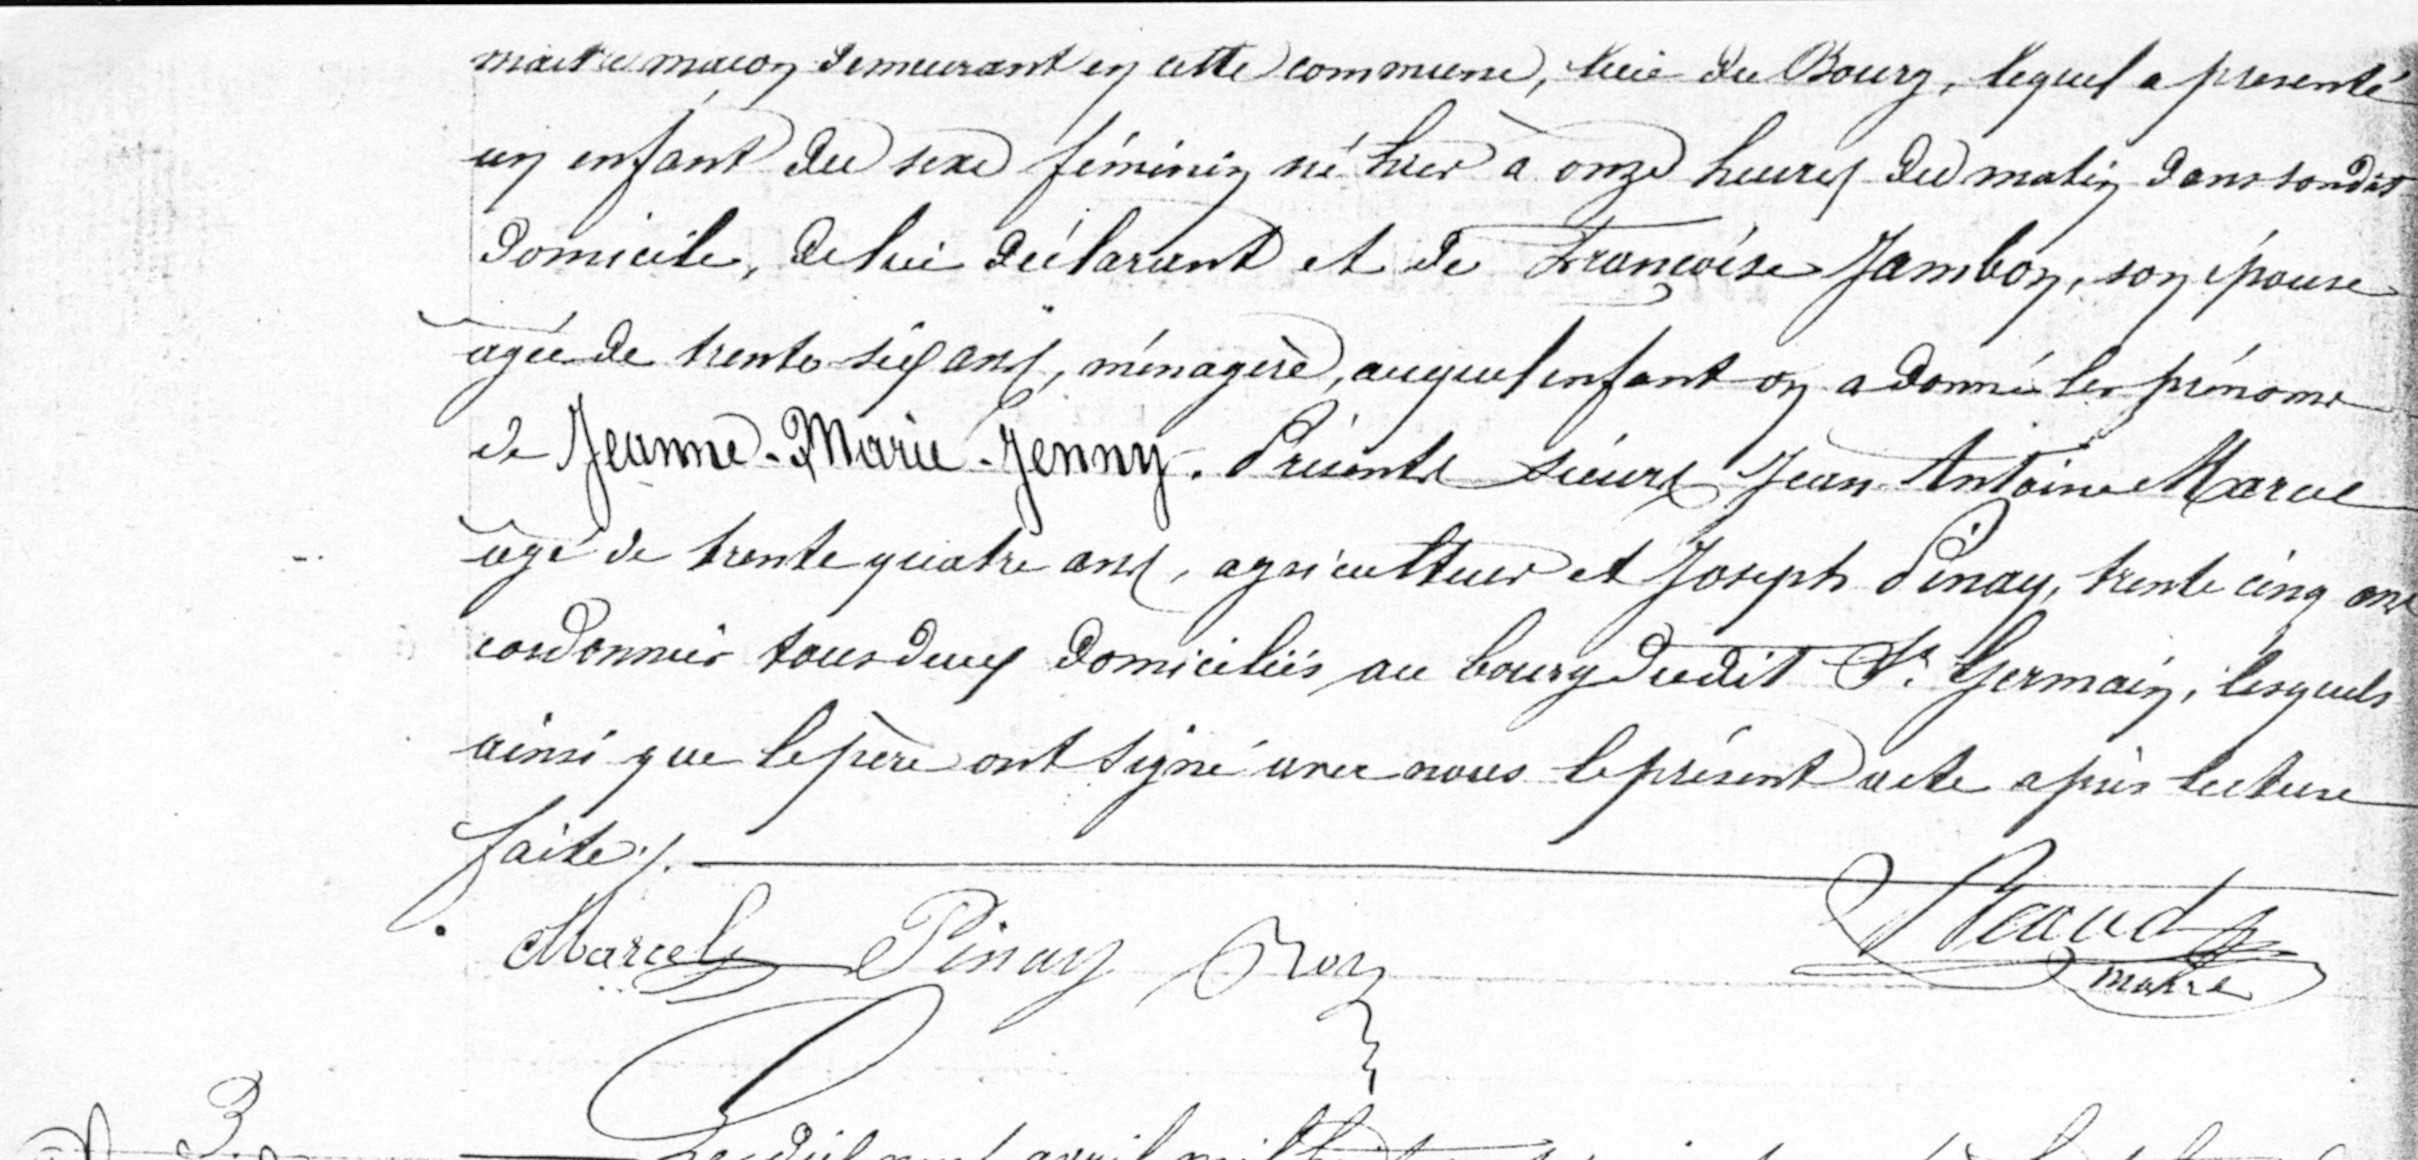 maitre maçon demeurant en cette commune, lieu du Bourg, lequel a presenté
un enfant du sexe féminin né hier à onze heures du matin dans sondit
domicile, de lui déclarant et de Françoise Jambon, son épouse
agée de trente six ans, ménagère, auquel enfant on a donné les prénoms
de Jeanne-Marie-Jenny. Présents sieurs Jean Antoine Marcel
agé de trente quatre ans, agriculteur et Joseph Pinay, trente cinq ans
cordonnier tous deux domiciliés au bourg dudit St. Germain, lesquels
ainsi que le père ont signé avec nous le présent acte après lecture
faite ./.
Marcel Pinay
maire
3
Le dix neuf avril mil huit